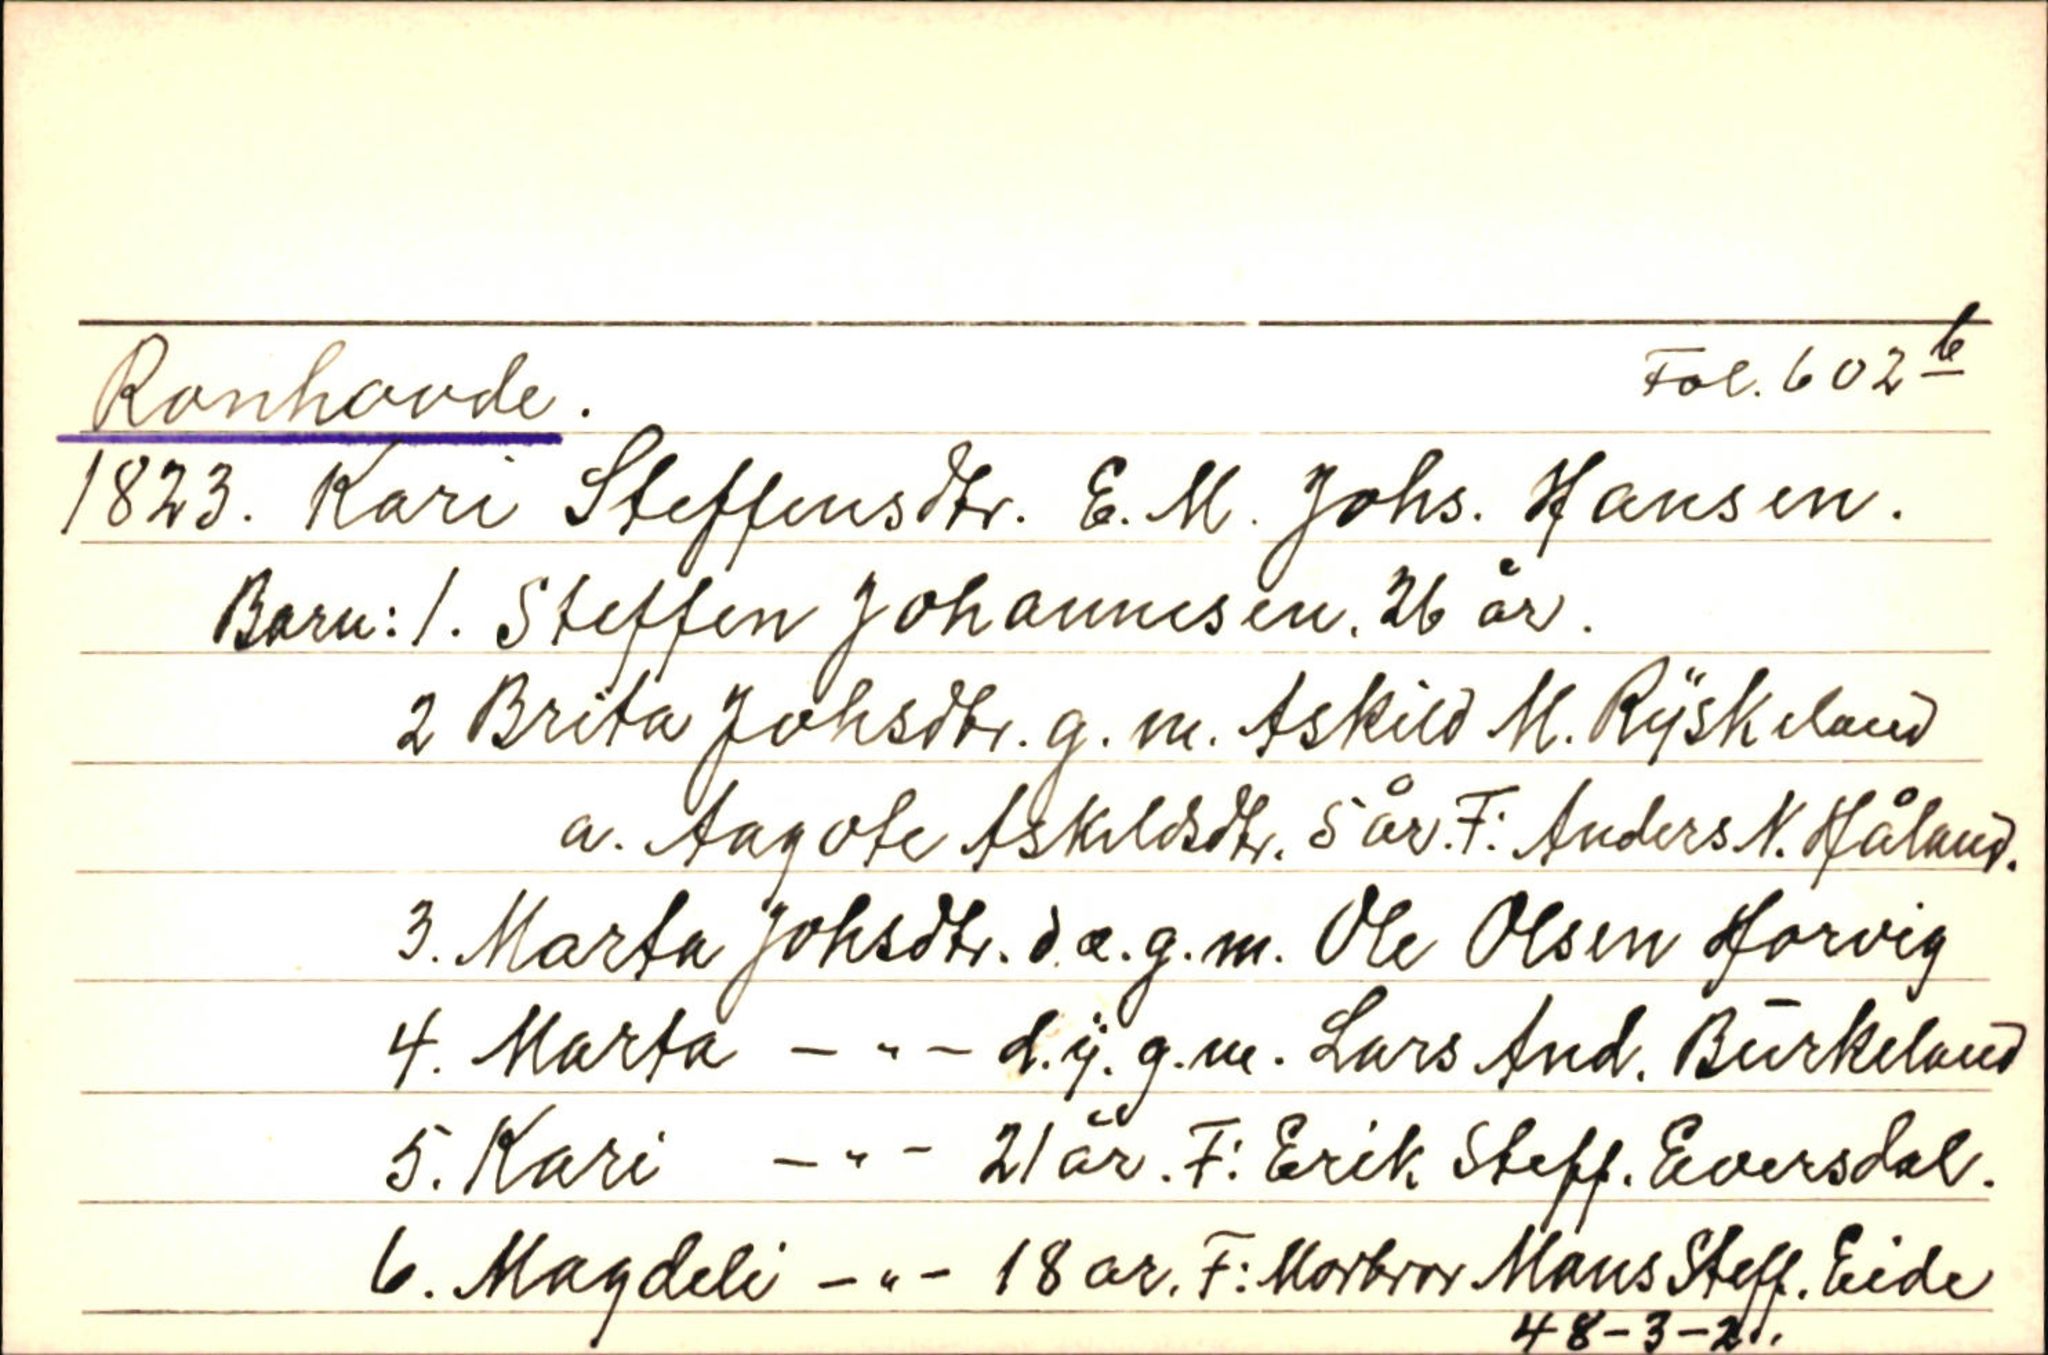 Ronhovde. Fol. 602 b
1823. Kari Steffensdtr. E. M. Johs. Hansen.
Barn: 1. Steffen Johannesen. 26 år.
2 Brita Johsdtr. g. m. Askild M. Rÿskeland
a. Aagote Askildsdtr. 5 år. F: Anders N. Håland.
3. Marta Johsdtr. d.e. g. m. Ole Olsen Horvig
4. Marta - " - d.y. g. m. Lars And. Burkeland
5. Kari - " - 21 år. F: Erik Steff. Eversdal.
6. Magdeli - " - 18 ar. F: Morbror Mons Steff. Eide
48-3-21.